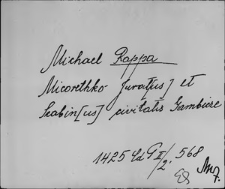 Michael Rappa
Micorethko Jurat[us] et
Scabin[us] civitatis Gambiere
1425 Ed G I/2, 568